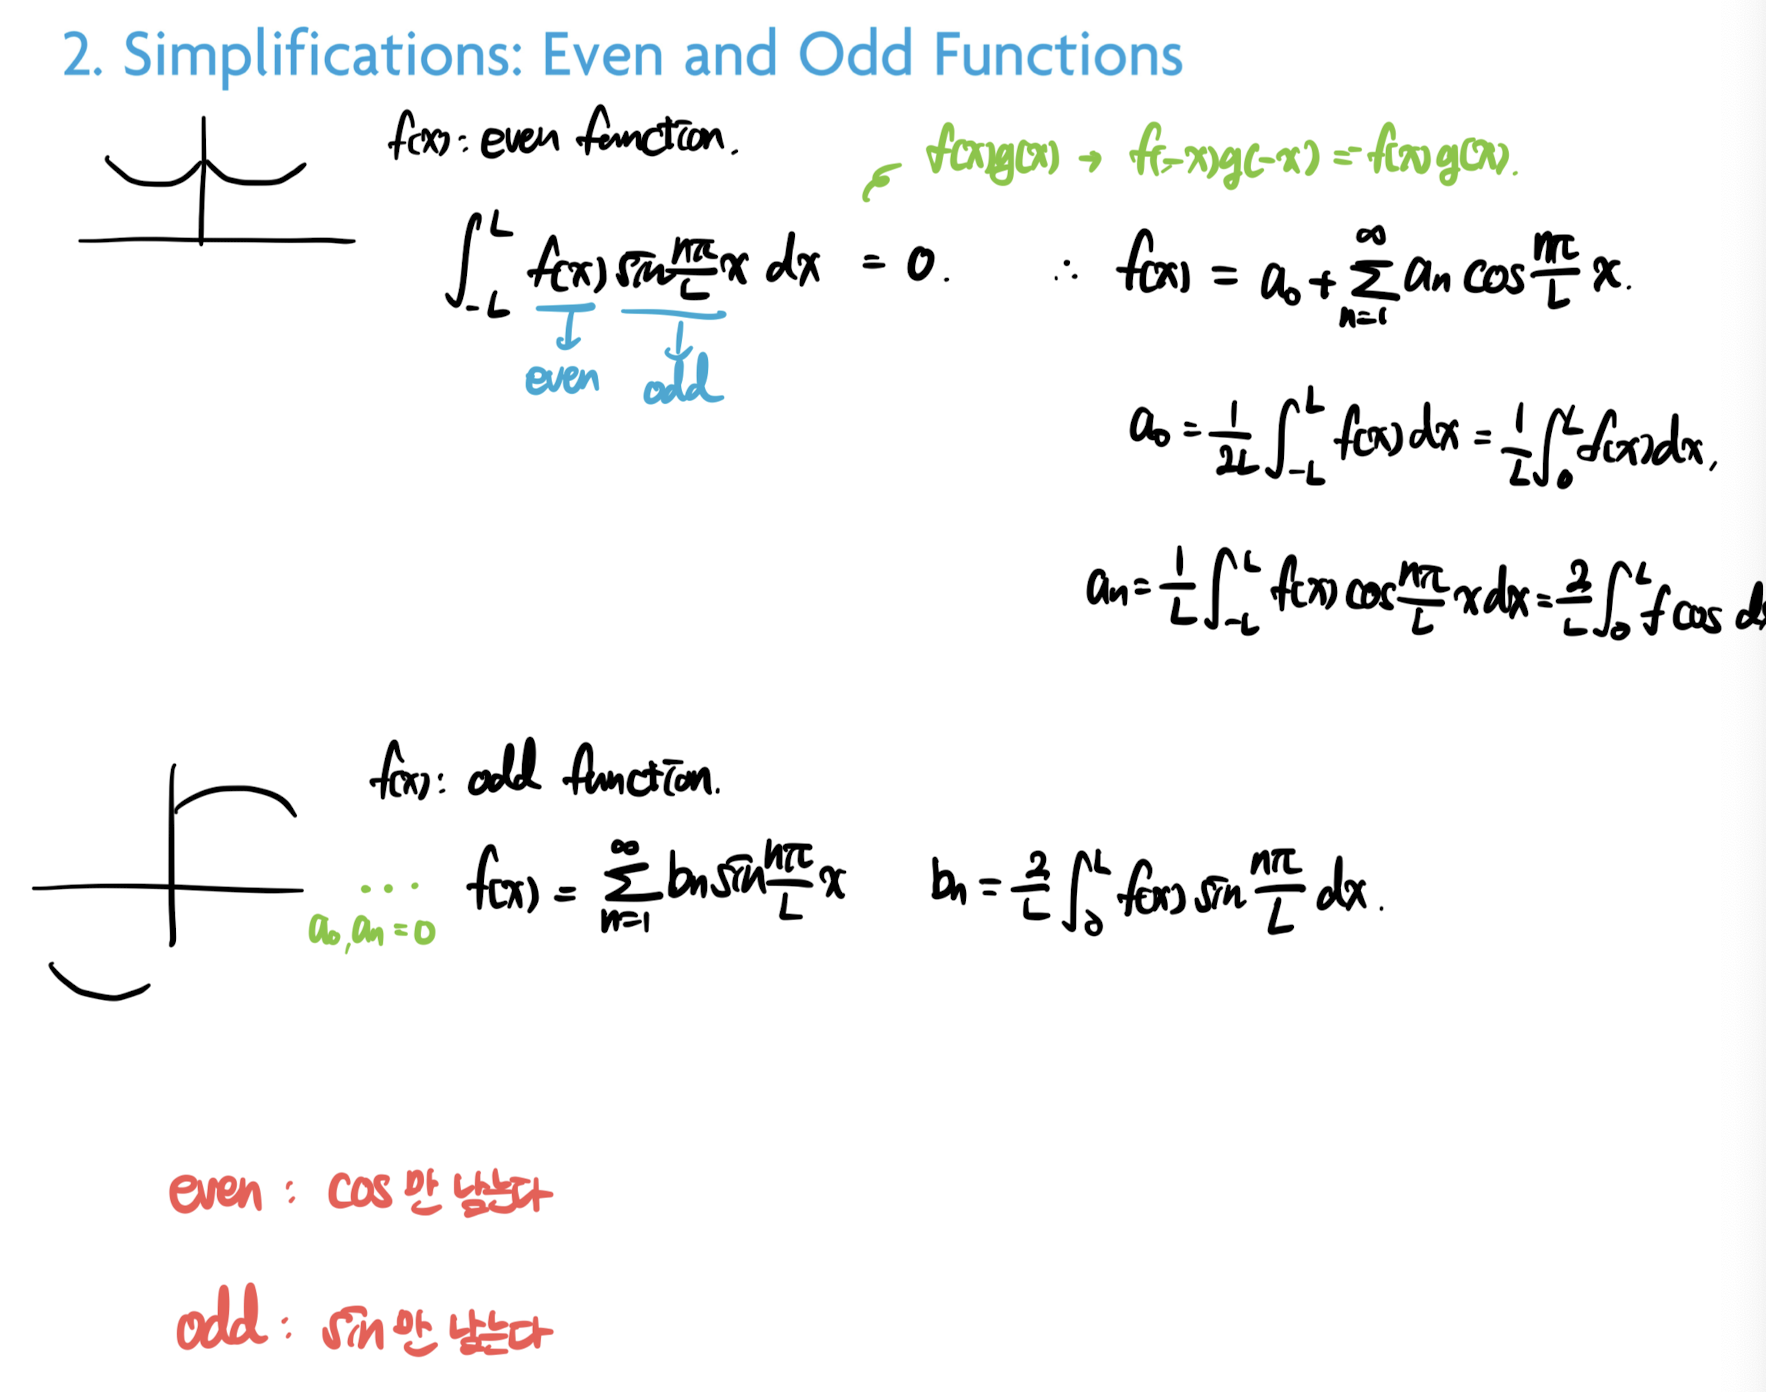 2. Simplifications: Even and Odd Functions
f(x) : even function.
f(x)g(x) → f(-x)g(-x) = -f(x)g(x).
∫_{-L}^{L} f(x) sin nπ/L x dx = 0. ∴ f(x) = a₀ + ∑_{n=1}^{∞} an cos nπ/L x.
even odd
a₀ = 1/2L ∫_{-L}^{L} f(x) dx = 1/L ∫_{0}^{L} f(x) dx,
an = 1/L ∫_{-L}^{L} f(x) cos nπ/L x dx = 2/L ∫_{0}^{L} f cos dx
f(x) : odd function.
... f(x) = ∑_{n=1}^{∞} bn sin nπ/L x bn = 2/L ∫_{0}^{L} f(x) sin nπ/L dx.
a₀, an = 0
even : cos 만 남는다
odd : sin 만 남는다